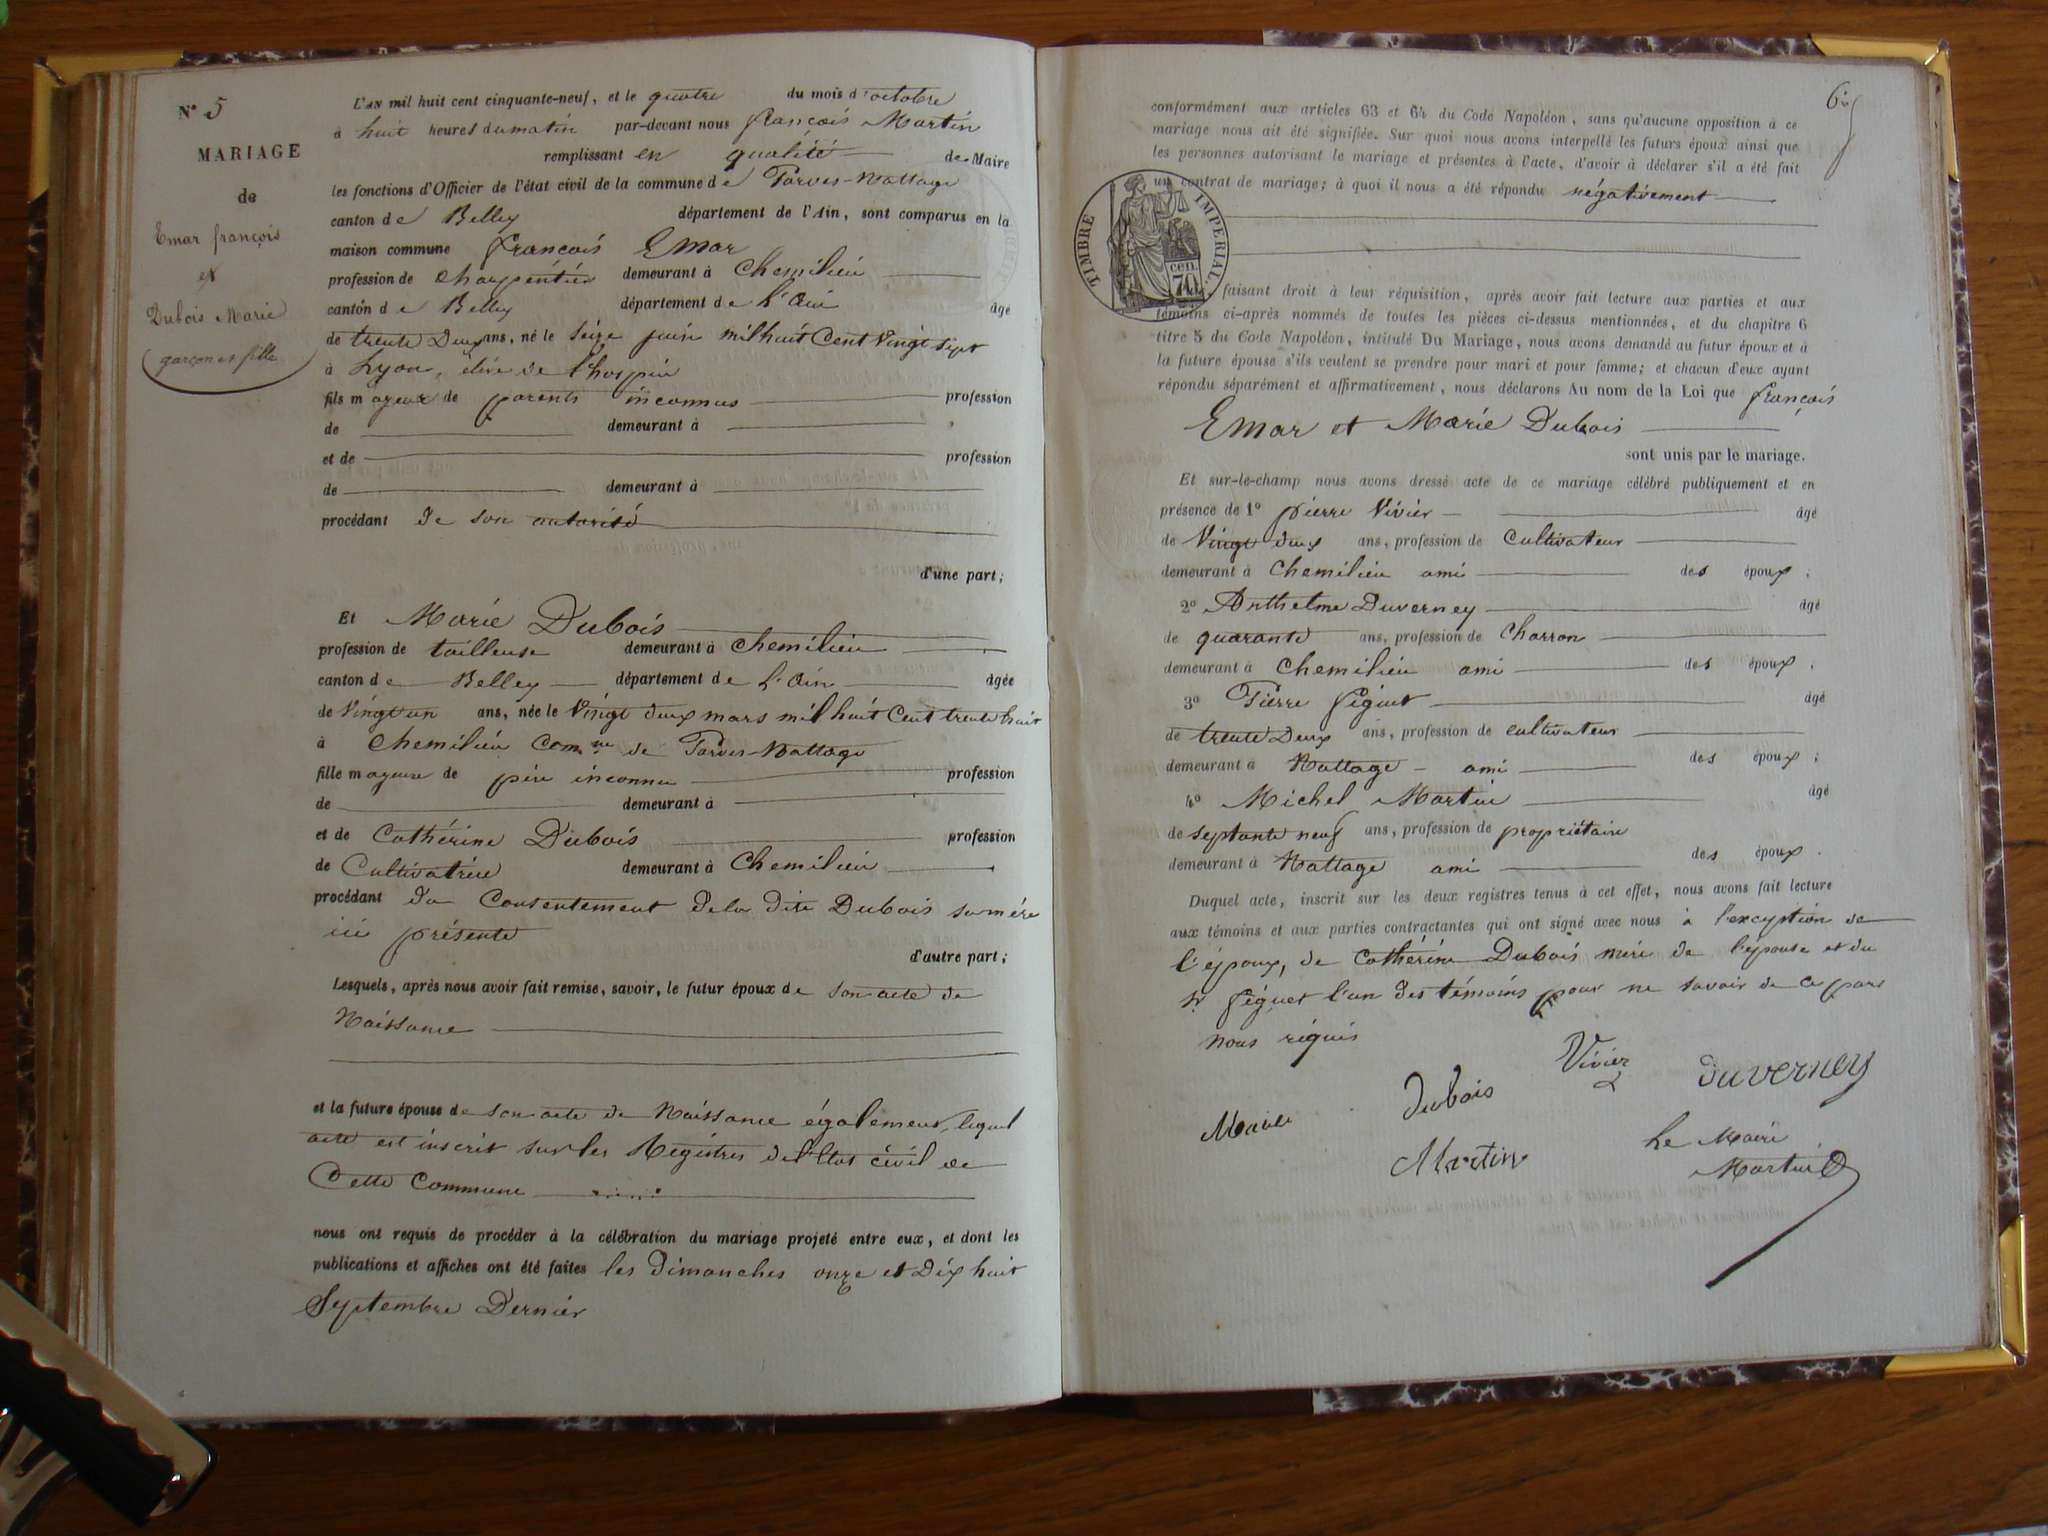 N° 5
MARIAGE
de
Emar françois
et
Dubois Marie
garçon et fille
L'AN mil huit cent cinquante-neuf, et le quatre du mois d'octobre
à huit heures du matin par-devant nous françois Martin
remplissant en qualité de Maire
les fonctions d'Officier de l'état civil de la commune de Parves-Nattage
canton de Belley département de l'Ain, sont comparus en la
maison commune françois Emar
profession de charpentier demeurant à Chemilieu
canton de Belley département de L'Ain âgé
de trente Deux ans, né le Seize juin mil huit Cent Vingt Sept
à Lyon, élève de l'hospice
fils majeur de parents inconnus profession
de demeurant à
et de profession
de demeurant à
procédant de son autorité
d'une part;
Et Marie Dubois
profession de tailleuse demeurant à Chemilieu
canton de Belley département de L'Ain âgée
de Vingt un ans, née le Vingt deux mars mil huit Cent trente huit
à Chemilieu Comne de Parves-Nattage
fille majeure de père inconnu profession
de demeurant à
et de Cathérine Dubois profession
de Cultivatrice demeurant à Chemilieu
procédant du Consentement de la dite Dubois sa mère
ici présente
d'autre part;
Lesquels, après nous avoir fait remise, savoir, le futur époux de son acte de
Naissance
et la future épouse de son acte de Naissance également, lequel
acte est inscrit sur les Registres de l'Etat civil de
Cette Commune
nous ont requis de procéder à la célébration du mariage projeté entre eux, et dont les
publications et affiches ont été faites les Dimanches onze et Dix huit
Septembre Dernier
conformément aux articles 63 et 64 du Code Napoléon, sans qu'aucune opposition à ce
mariage nous ait été signifiée. Sur quoi nous avons interpellé les futurs époux ainsi que
les personnes autorisant le mariage et présentes à l'acte, d'avoir à déclarer s'il a été fait
un contrat de mariage; à quoi il nous a été répondu négativement
TIMBRE IMPERIAL
70 cen.
faisant droit à leur réquisition, après avoir fait lecture aux parties et aux
témoins ci-après nommés de toutes les pièces ci-dessus mentionnées, et du chapitre 6
titre 5 du Code Napoléon, intitulé Du Mariage, nous avons demandé au futur époux et à
la future épouse s'ils veulent se prendre pour mari et pour femme; et chacun d'eux ayant
répondu séparément et affirmativement, nous déclarons Au nom de la Loi que françois
Emar et Marie Dubois
sont unis par le mariage.
Et sur-le-champ nous avons dressé acte de ce mariage célébré publiquement et en
présence de 1° pierre Vivier âgé
de Vingt deux ans, profession de Cultivateur
demeurant à Chemilieu ami des époux;
2° Anthelme Duverney âgé
de quarante ans, profession de Charron
demeurant à Chemilieu ami des époux;
3° Pierre Péguet âgé
de trente Deux ans, profession de cultivateur
demeurant à Nattage ami des époux;
4° Michel Martin âgé
de septante neuf ans, profession de propriétaire
demeurant à Nattage ami des époux.
Duquel acte, inscrit sur les deux registres tenus à cet effet, nous avons fait lecture
aux témoins et aux parties contractantes qui ont signé avec nous à l'exception de
l'époux, de Cathérine Dubois mère de l'épouse et du
Sr Péguet l'un des témoins pour ne savoir de ce par
nous requis
Vivier
Marie Dubois Duverney
Martin Le Maire
Martin